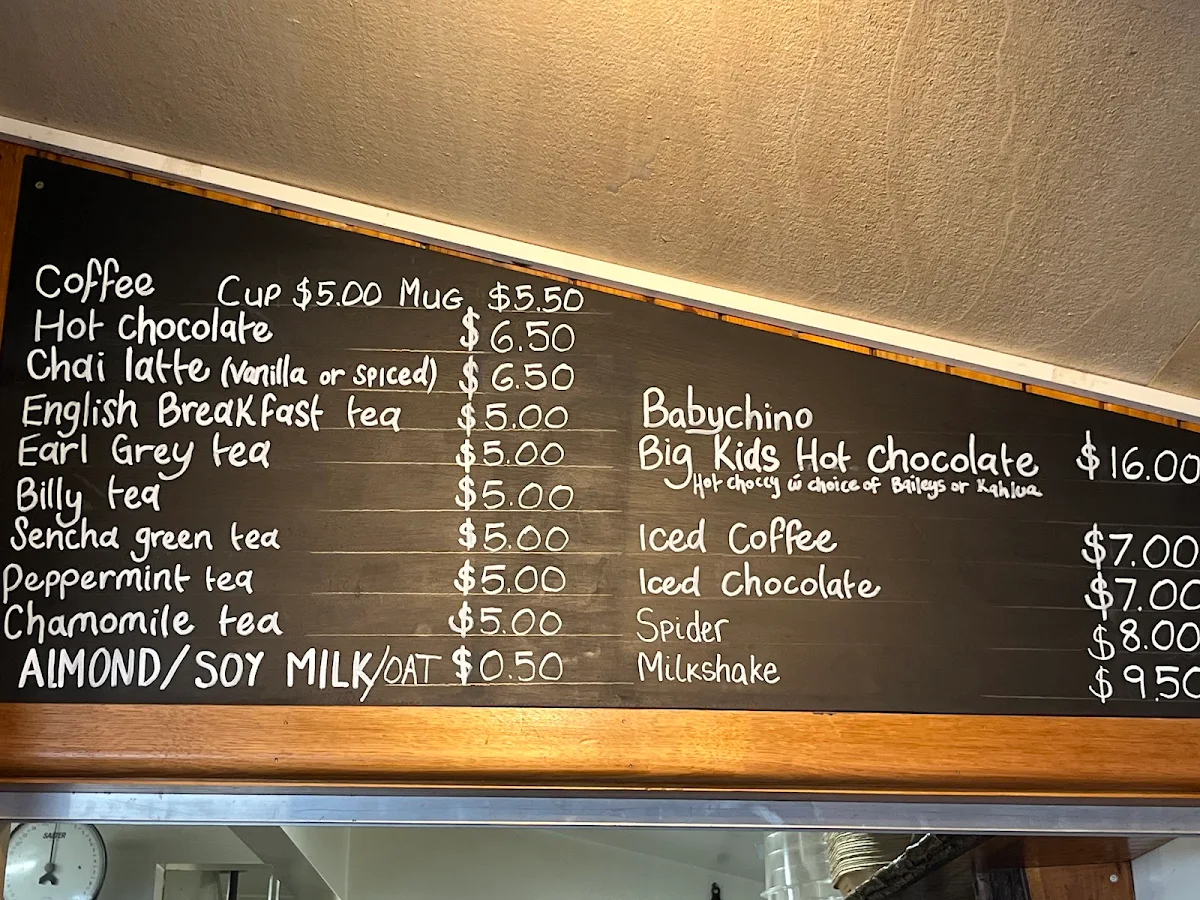 Coffee Cup $5.00 Mug $5.50
Hot Chocolate $6.50
Chai latte (Vanilla or spiced) $6.50
English Breakfast tea $5.00
Earl Grey tea $5.00
Billy tea $5.00
Sencha green tea $5.00
Peppermint tea $5.00
Chamomile tea $5.00
AlMOND/SOY MILK/OAT $0.50
Babychino
Big Kids Hot Chocolate $16.00
Hot choccy w choice of Baileys or Kahlua
Iced Coffee $7.00
Iced Chocolate $7.00
Spider $8.00
Milkshake $9.50
SALTER